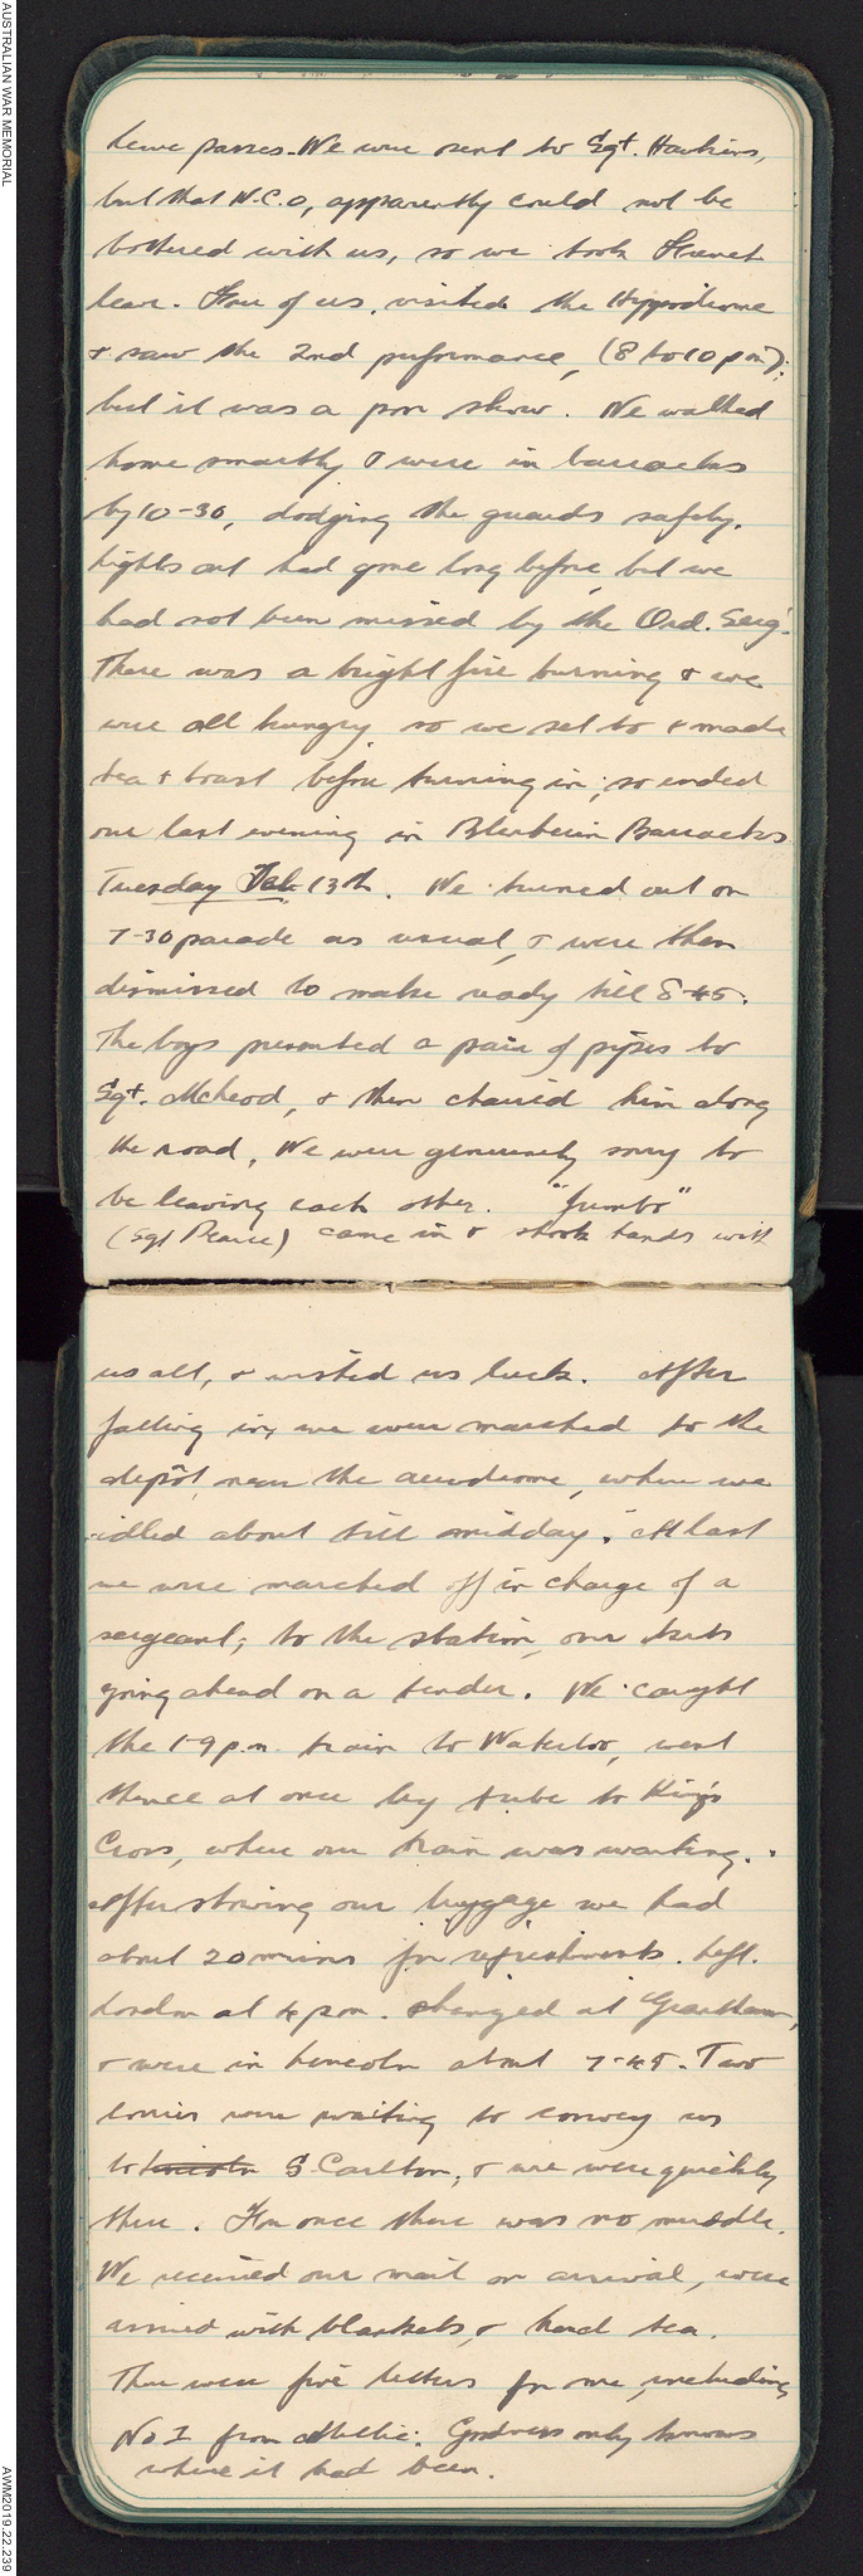 AUSTRALIAN WAR MEMORIAL
leave passes. We were sent to Sgt. Hawkins,
but that N.C.O, apparently could not be
bothered with us, so we took French
leave. Four of us, visited the Hippodrome
& saw the 2nd performance, (8 to 10 pm);
but it was a poor show. We walked
home smartly & were in barracks
by 10-30, dodging the guards safely.
Lights out had gone long before, but we
had not been missed by the Ord. Serg.
There was a bright fire burning & we
were all hungry so we set to & made
tea & toast before turning in; so ended
our last evening in Blenheim Barracks
Tuesday Feb 13th. We turned out on
7-30 parade as usual, & were then
dismissed to make ready till 8-45.
The boys presented a pair of pipes to
Sgt. McLeod, & then chaired him along
the road. We were genuinely sorry to
be leaving each other. "Jumbo"
(Sgt Pearce) came in & shook hands with
us all, & wished us luck. After
falling in, we were marched to the
depôt, near the aerodrome, where we
idled about till midday. At last
we were marched off in charge of a
sergeant; to the station, our kits
going ahead on a tender. We caught
the 1-9 p.m. train to Waterloo, went
thence at once by tube to King's
Cross, where our train was waiting.
After stowing our luggage we had
about 20 mins for refreshments. Left.
London at 4 pm. changed at Grantham,
& were in Lincoln about 7-45. Two
lorries were waiting to convey us
to Lincoln S. Carlton, & we were quickly
there. For once there was no muddle.
We received our mail on arrival, were
issued with blankets, & had tea.
There were five letters for me, including
No 1 from Nellie. Goodness only knows
where it had been.
AWM2019.22.239